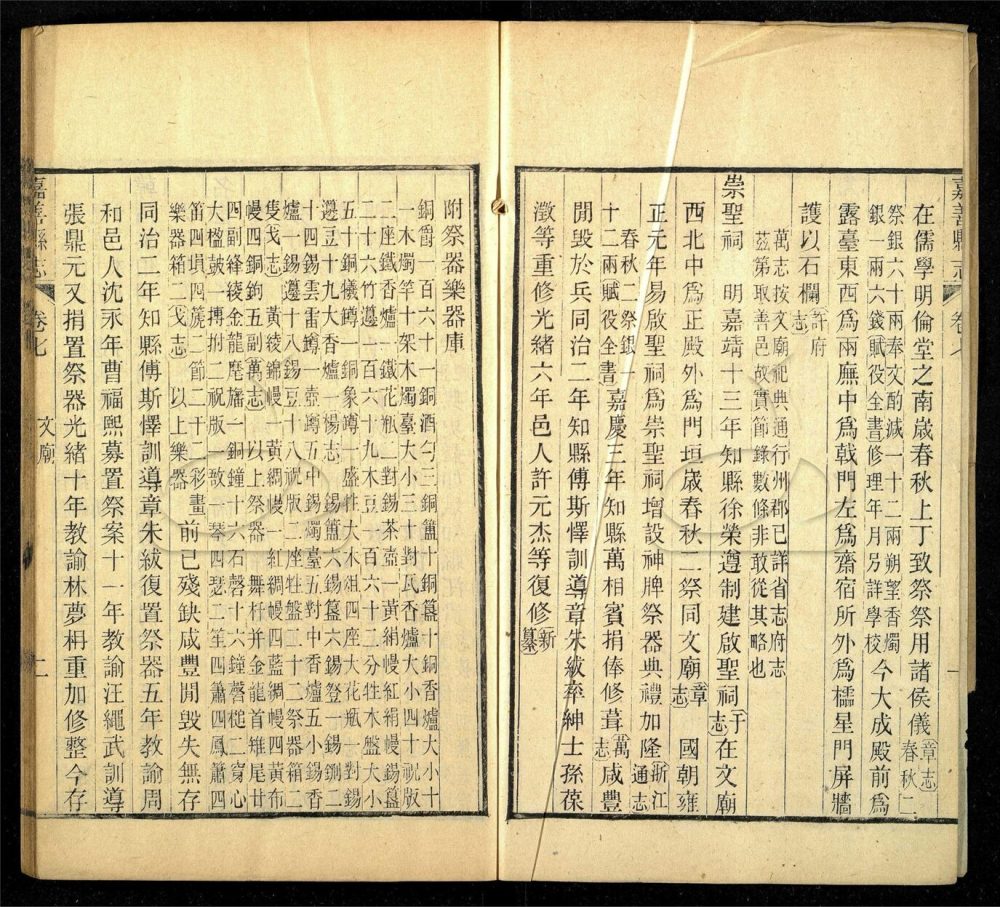 嘉善縣志 卷七
在儒學明倫堂之南歲春秋上丁致祭祭用諸侯儀章志春秋二
祭銀六十兩奉文酌減一十二兩朔望香燭
銀一兩六錢賦役全書修理年月另詳學校今大成殿前爲
露臺東西爲兩廡中爲戟門左爲齋宿所外爲櫺星門屏牆
護以石欄許府志
萬志按文廟祀典通行州郡已詳省志府志
茲第取善邑故實節錄數條非敢從其略也
崇聖祠 明嘉靖十三年知縣徐榮遵制建啟聖祠于志在文廟
西北中爲正殿外爲門垣歲春秋二祭同文廟章志 國朝雍
正元年易啟聖祠爲崇聖祠增設神牌祭器典禮加隆浙江通志
春秋二祭銀一
十二兩賦役全書嘉慶三年知縣萬相賓捐俸修葺萬志咸豐
閒毀於兵同治二年知縣傅斯懌訓導章朱紱率紳士孫葆
澂等重修光緒六年邑人許元杰等復修新纂
附祭器樂器庫
銅爵一百六十一銅酒勺三銅簠十銅簋十銅香爐大小十
一木燭竿十架木燭臺大小三十對瓦香爐大小四十祝版
二座鐵香爐一鐵花瓶二對錫茶壺一黃絹幔紅絹幔錫簋
二十六竹籩一百六十九木豆一百六十二分牲木盤大小
五十銅犧罇一銅象罇一盛牲大木俎四座大花瓶一對錫
籩豆十九大香爐一楊志
十四錫雲雷罇一壺罇五中錫燭臺五對中香爐五小錫香
爐一錫籩十八錫豆十八祝版二座牲盤二十二祭器箱二
隻戈志 黃綾錦幔一黃綢幔一紅綢幔四藍綢幔四黃布
幔四銅鉤五副萬志 以上祭器 舞杆并金龍首雉尾廿
四副絳綾金龍麾旛一銅鐘十六石磬十六鐘磬槌二寳心
大楹鼓一摶拊二祝版一敔一琴四瑟二笙四簫四鳳簫四
笛四塤四箎二節二干二彩畫
樂器箱二戈志 以上樂器 前已殘缺咸豐閒毀失無存
同治二年知縣傅斯懌訓導章朱紱復置祭器五年教諭周
和邑人沈氶年曹福熙募置祭案十一年教諭汪繩武訓導
張鼎元又捐置祭器光緒十年教諭林夢枏重加修整今存
嘉善縣志 卷七 文廟 二